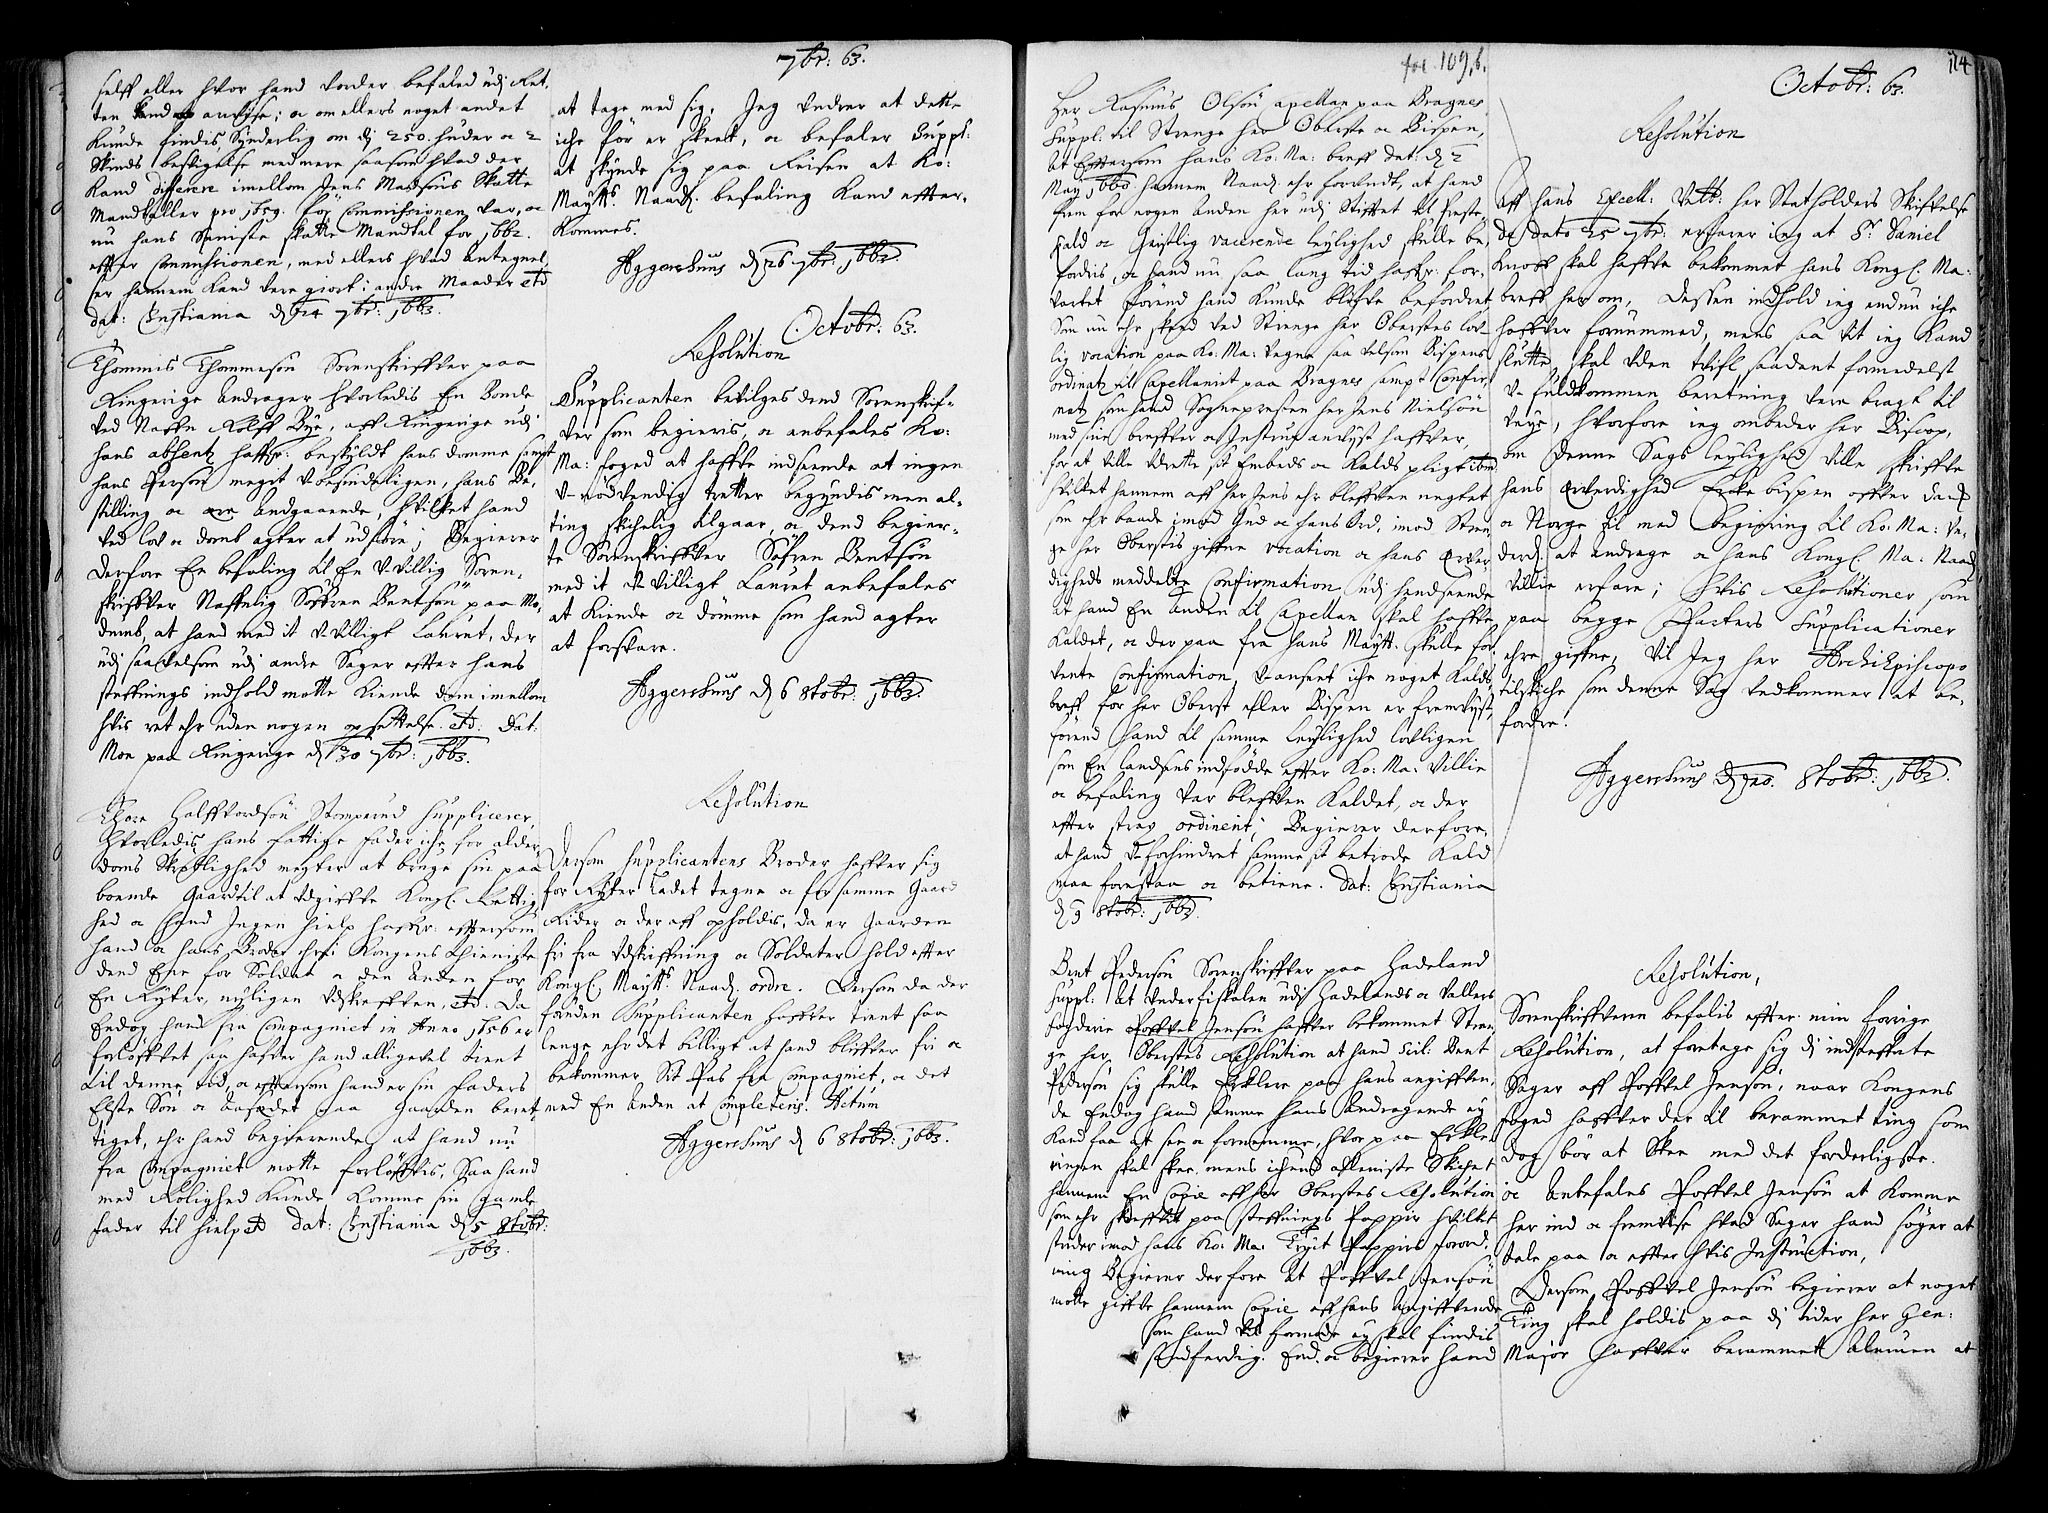 7br: 63.
selff eller hvor hand vorder befaled udj Ret,
ten kand anvise; oc om ellers noget andet
kunde findis, Synderlig om dj 250. huder oc 2
skinds bevigelse med mere saasom hvad der
Kand differere imellom Jens Madsøns Skatte
Mandtaller pro 1659. før Commissionen var, oc
nu hans Seniste skatte Mandtal for 1662.
effter Commissionen, med ellers hvad Antegnel,
ser hannem kand vere giort i andre Maader etc
dat: Christiania d 24 7br: 1663.
Thommis Thommesøn Sorenskriffver paa
Ringerige Andrager hvorledis En Bonde
ved Naffn Rolff Bye, aff Ringerige udj
hans absentz haffr: beskyldt hans domme sampt
hans Person meget Ubesindeligen, hans Be,
stilling oc ære Andgaaende, hvilket hand
ved lov oc domb agter at udføre; Begierer
derfore En befaling til En Uvillig Soren,
skriffver Naffnlig Søffren Bentsøn paa Mo,
dumb, at hand med it Uvilligt Lauret, der
udj saavelsom udj andre Sager effter hans
steffnings indhold motte Kiende dem imellom
hvis ret ehr uden nogen opsettelse. etc. Dat:
Moe paa Ringerige d 30 7br: 1663.
Thore Halffvordsøn Stomperud Supplicerer,
hvorledis hans fattige fader iche for alder,
doms Skrøblighed megter at bruge sin paa
boende Gaard til at udgiffte Kongl: Rettig,
hed oc hand Ingen hielp haffr: efftersom
hand oc hans Broder ehr i Kongens thieniste
dend Ene for Soldat oc den Anden for
En Rytter, nyligen udskreffven, etc. Da
Endog hand fra Compagniet in Anno 1656 er
forløffvet saa haffver hand alligevel tient
til denne tid, oc efftersom hand er sin faders
Elste Søn oc Aasædet paa Gaarden beret,
tiget, ehr hand begierende at hand nu
fra Compagniet motte forløffvis, Saa hand
med Rolighed Kunde komme sin gamle
fader til hielp etc Dat: Christiania d 5 8tobr:
1663.
at tage med sig, Jeg undrer at dette
iche før er skeed, oc befaler Suppl:
at skynde sig paa Reisen at Ko:
Maytts. Naad. befaling Kand effter,
Kommes.
Aggershuus d 26 7br: 1663
Octobr: 63.
Resolution
Supplicanten bevilges dend Sorenskrif=
ver som begieris, oc anbefales Ko:
Ma: foged at haffve indseende at ingen
U-nødvendig tretter begyndis men al=
ting skichelig tilgaar, oc dend begier=
te Sorenskriffver Søfren Bentsøn
med it U-villigt Lauret anbefales
at Kiende oc dømme som hand agter
at forsvare.
Aggershuus d 6 8tobr: 1663.
Resolution
Dersom Supplicantens Broder haffver sig
for Ryter ladet tegne oc for samme Gaard
Rider oc der aff opholdis, da er Gaarden
fri fra Udskriffning oc Soldater hold effter
Kongl: Maytts. Naad. ordre. Dersom da der
foruden Supplicanten haffver tient saa
lenge ehr det billigt at hand bliffver fri oc
bekommer Sit Pas fra Compagniet, oc det
med En Anden at Completeris. Actum
Aggershuus d 6 8tobr: 1663.
fol. 109, b.
114
Octobr: 63.
Her Rasmus Olsøn Capellan paa Bragnes
Suppl: til Strenge her Oberste oc Bispen,
At Efftersom hans Ko: Ma: breff dat: d 2
May 1660. hannem Naad. ehr forundt, at hand
frem for nogen Anden her udj Stifftet til Preste
Kald oc Geistlig vacerende leylighed skulle be,
fordris, oc hand nu saa lang tid haffr: for,
vartet førend hand kunde bliffve befordret
Som nu ehr skeed ved Strenge her Oberstes lov
lig vocation paa Ko: Ma: vegne saa velsom Bispens
ordinatz til Capellaniet paa Bragnes sampt Confir,
matz som hand Sognepresten her Jens Nielsøn
med sine breffver oc Instrux anvist haffver,
for at ville udrette sit Embeds oc Kalds pligt iben
hvilket hannem aff her Jens ehr bleffven negtet
som ehr baade imod Gud oc hans Ord, imod Stren,
ge her Oberstis giffne vocation oc hans Erver
digheds meddelte Confirmation, udj henseende
At hand En Anden til Capellan skal haffve
Kaldet, oc der paa fra hans Maytt. skulle for
vente Confirmation, Uanseet iche noget Kalds,
breff for her Oberst eller Bispen er fremvist,
førend hand til samme leylighed lovligen
som En landsens indfødde effter Ko: Ma: Villie
oc befaling var bleffven Kaldet, oc der
effter strax ordineret; Begierer derfore,
at hand U-forhindret samme sit betrode Kald
maa forestaa oc betiene. dat: Christiania
d 9 8tobr: 1663.
Bent Pedersøn Sorenskriffver paa Hadeland
Suppl: At Underfiskalen udj Hadelands oc Vallers
fogderie Poffvel Jensøn haffver bekommet Stren
ge her Oberstes Resolution at hand scil: Bent
Pedersøn sig skulle Erklere paa hans angiffven,
de Endog hand samme hans Andragende ey
Kand faa at see oc fornemme, hvor paa Erkle
ringen skal skee, mens ichund alleniste Skichet
hannem En Copie aff her Oberstes Resolution
som ehr skreffvet paa steffnings Pappir hvilket
strider imod hans Ko: Ma: tryct Pappirs forord,
ning Begierer derfore At Poffvel Jensøn
motte giffve hannem Copie aff hans Angiffvende
som hand vil formode ey skal findis
Rædferdig. End oc begierer hand
Resolution
Aff hans Excell: Velb: her Statholders Skriffvelse
de dato 25 7br: erfarer ieg at Sr. Daniel
Knoff skal haffve bekommet hans Kongl: Ma:
breff her om, Dessen indhold ieg endnu iche
haffver fornummed, mens saa vit ieg kand
slutte, skal uden tvifl saadant formedelst
U-fuldkommen beretning vere bragt til
veye, hvorfore ieg ombeder her Biscop,
om denne Sags leylighed ville skriffve
hans Erverdighed Erchebispen offver Danm
oc Norge til med begiering til Ko: Ma: Un-
derd: at Andrage oc hans Kongl: Ma: Naad
Villie erfare; hvis Resolutioner som
paa begge Parters Supplicationer
ehre giffne, vil Jeg her Archi Episcopo
tilskiche som denne Sag vedkommer at be,
fordre.
Aggershuus d 10. 8tobr: 1663.
Resolution,
Sorenskriffveren befalis effter min forrige
Resolution, at foretage sig dj indsteffnte
Sager aff Poffvel Jensøn, naar Kongens
foged haffver der til berammet ting som
dog bør at Skee med det forderligste.
oc Anbefales Poffvel Jensøn at Komme
her ind oc fremvise hvad Sager hand søger at
tale paa oc effter hvis Instruction,
Dersom Poffvel Jensøn begierer at noget
Ting skal holdis paa dj tider her Gen:
Major haffver berammet Almuen at